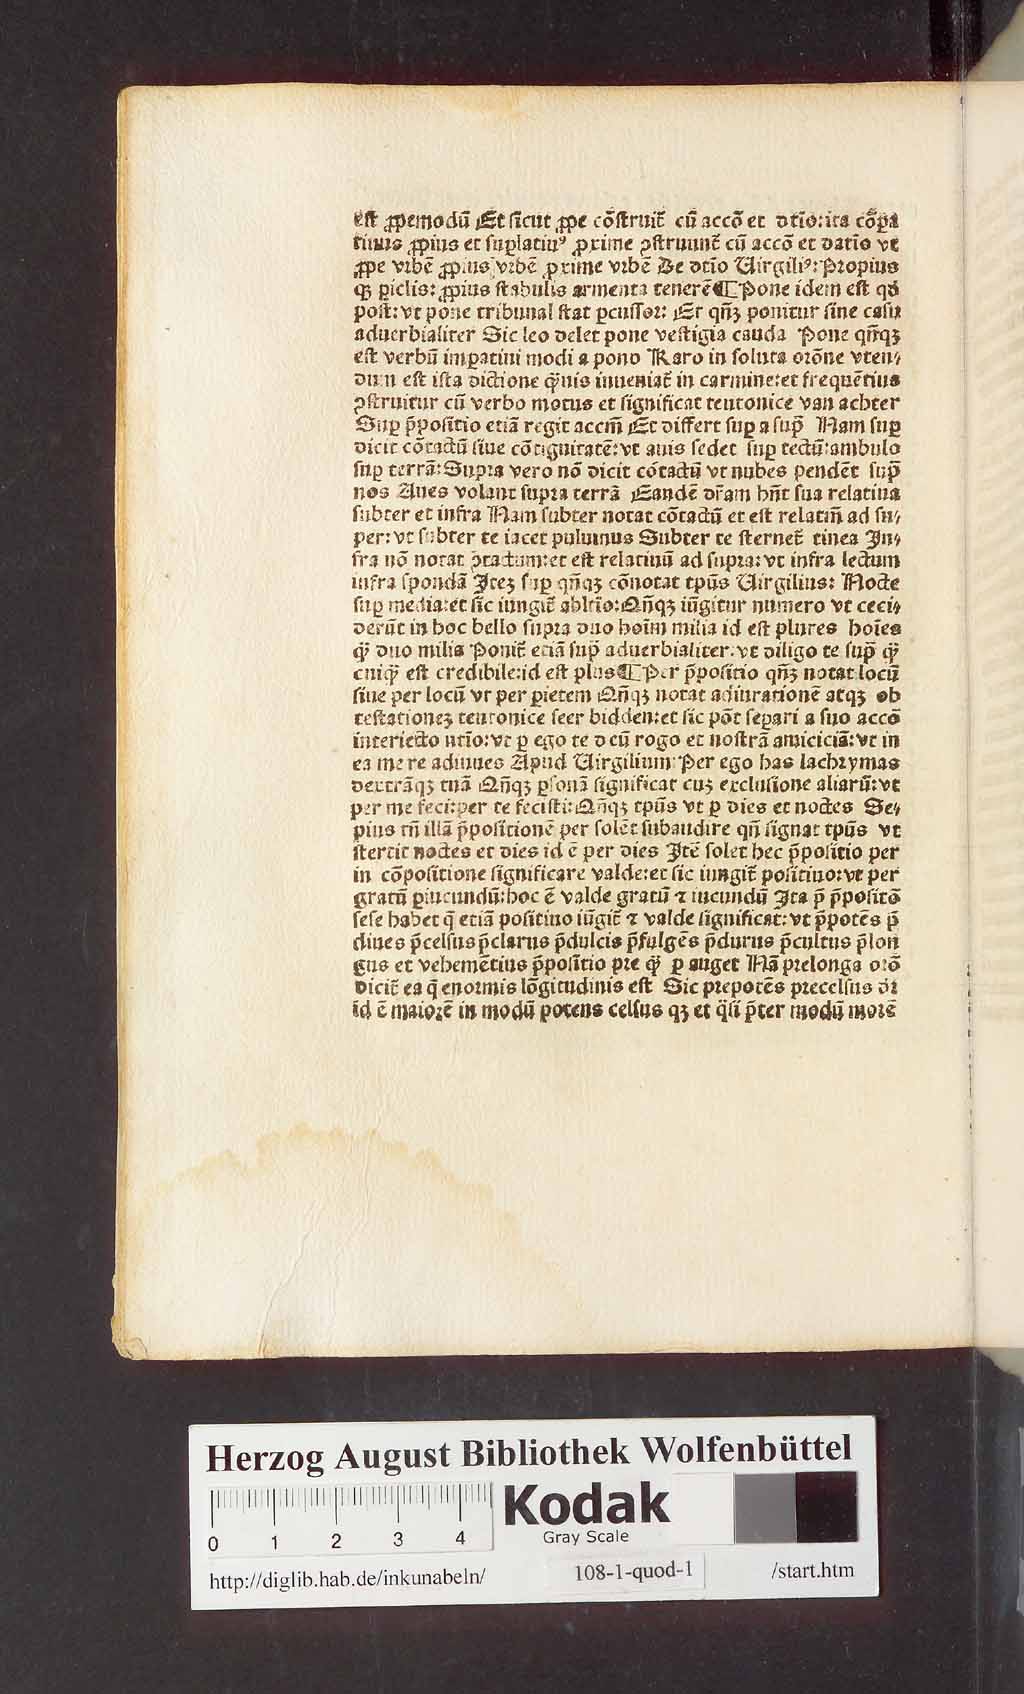 est ꝓpemodū Et sicut ꝓpe cōstruit̄ cū accō et dtīo: ita cōpa
tiuus ꝓpius et suꝑlatiuꝰ ꝓxime ꝯstruunt̄ cū accō et datīo vt
ꝓpe vrbē ꝓpius vrbē ꝓxime vrbē De dtīo Uirgiliꝰ: Propius
ꝑiclis: ꝓpius stabulis armenta tenerē ¶ Pone idem est qd
post: vt pone tribunal stat ꝑcussor: Et qn̄qꝫ ponitur sine casu
aduerbialiter Sic leo delet pone vestigia cauda Pone qn̄qꝫ
est verbū imꝑatiui modi a pono Raro in soluta orōne vten⸗
dum est ista dictione q̄uis inueniat̄ in carmine: et frequētius
ꝯstruitur cū verbo motus et significat teutonice van achter
Suꝑ p̄positio etiā regit accm̄ Et differt suꝑ a sup̄ Nam suꝑ
dicit cōtactū siue cōtiguitatē: vt auis sedet suꝑ tectū: ambulo
suꝑ terrā: Supra vero nō dicit cōtactū vt nubes pendēt sup̄
nos Aues volant supra terrā Eandē dr̄am hn̄t sua relatiua
subter et infra Nam subter notat cōtactū et est relatiū ad su⸗
per: vt subter te iacet puluinus Subter te sternet̄ tinea In⸗
fra nō notat ꝯtactum: et est relatiuū ad supra: vt infra lectum
infra spondā Iteꝫ suꝑ qn̄qꝫ cōnotat tp̄us Uirgilius: Nocte
suꝑ media: et sic iungit̄ abltīo: Qn̄qꝫ iūgitur numero vt ceci⸗
derūt in hoc bello supra duo hoīm milia id est plures hoīes
q̄ duo milia Ponit̄ etiā sup̄ aduerbialiter: vt diligo te sup̄ q̄
cuiq̄ est credibile: id est plus ¶ Per p̄positio qn̄qꝫ notat locū
siue per locū vt per parietem Qn̄qꝫ notat adiurationē atqꝫ ob
testationeꝫ teutonice seer bidden: et sic pōt seꝑari a suo accō
interiecto ntīo: vt ꝑ ego te deū rogo et nostrā amiciciā: vt in
ea me re adiuues Apud Uirgilium: Per ego has lachrymas
dextrāqꝫ tuā Qn̄qꝫ ꝑsonā significat cuꝫ exclusione aliarū: vt
per me feci: per te fecisti: Qn̄qꝫ tp̄us vt ꝑ dies et noctes Se⸗
pius tn̄ illā p̄positionē per solēt subaudire qn̄ signat tp̄us vt
stertit noctes et dies id ē per dies Itē solet hec p̄positio per
in cōpositione significare valde: et sic iungit̄ positiuo: vt per
gratū ꝑiucundū: hoc ē valde gratū ⁊ iucundū Ita p̄ p̄positō
sese habet q̄ etiā positiuo iūgit̄ ⁊ valde significat: vt p̄potēs p̄
diues p̄celsus p̄clarus p̄dulcis p̄fulgēs p̄durus p̄cultus p̄lon
gus et vehemētius p̄positio pre q̄ ꝑ auget Nā prelonga orō
dicit̄ ea q̄ enormis lōgitudinis est Sic prepotēs precelsus dr̄
id ē maiorē in modū potens celsus qꝫ et q̄si p̄ter modū morē
Herzog August Bibliothek Wolfenbüttel
Kodak
Gray Scale
0 1 2 3 4
http://diglib.hab.de/inkunabeln/ 108-1-quod-1 /start.htm